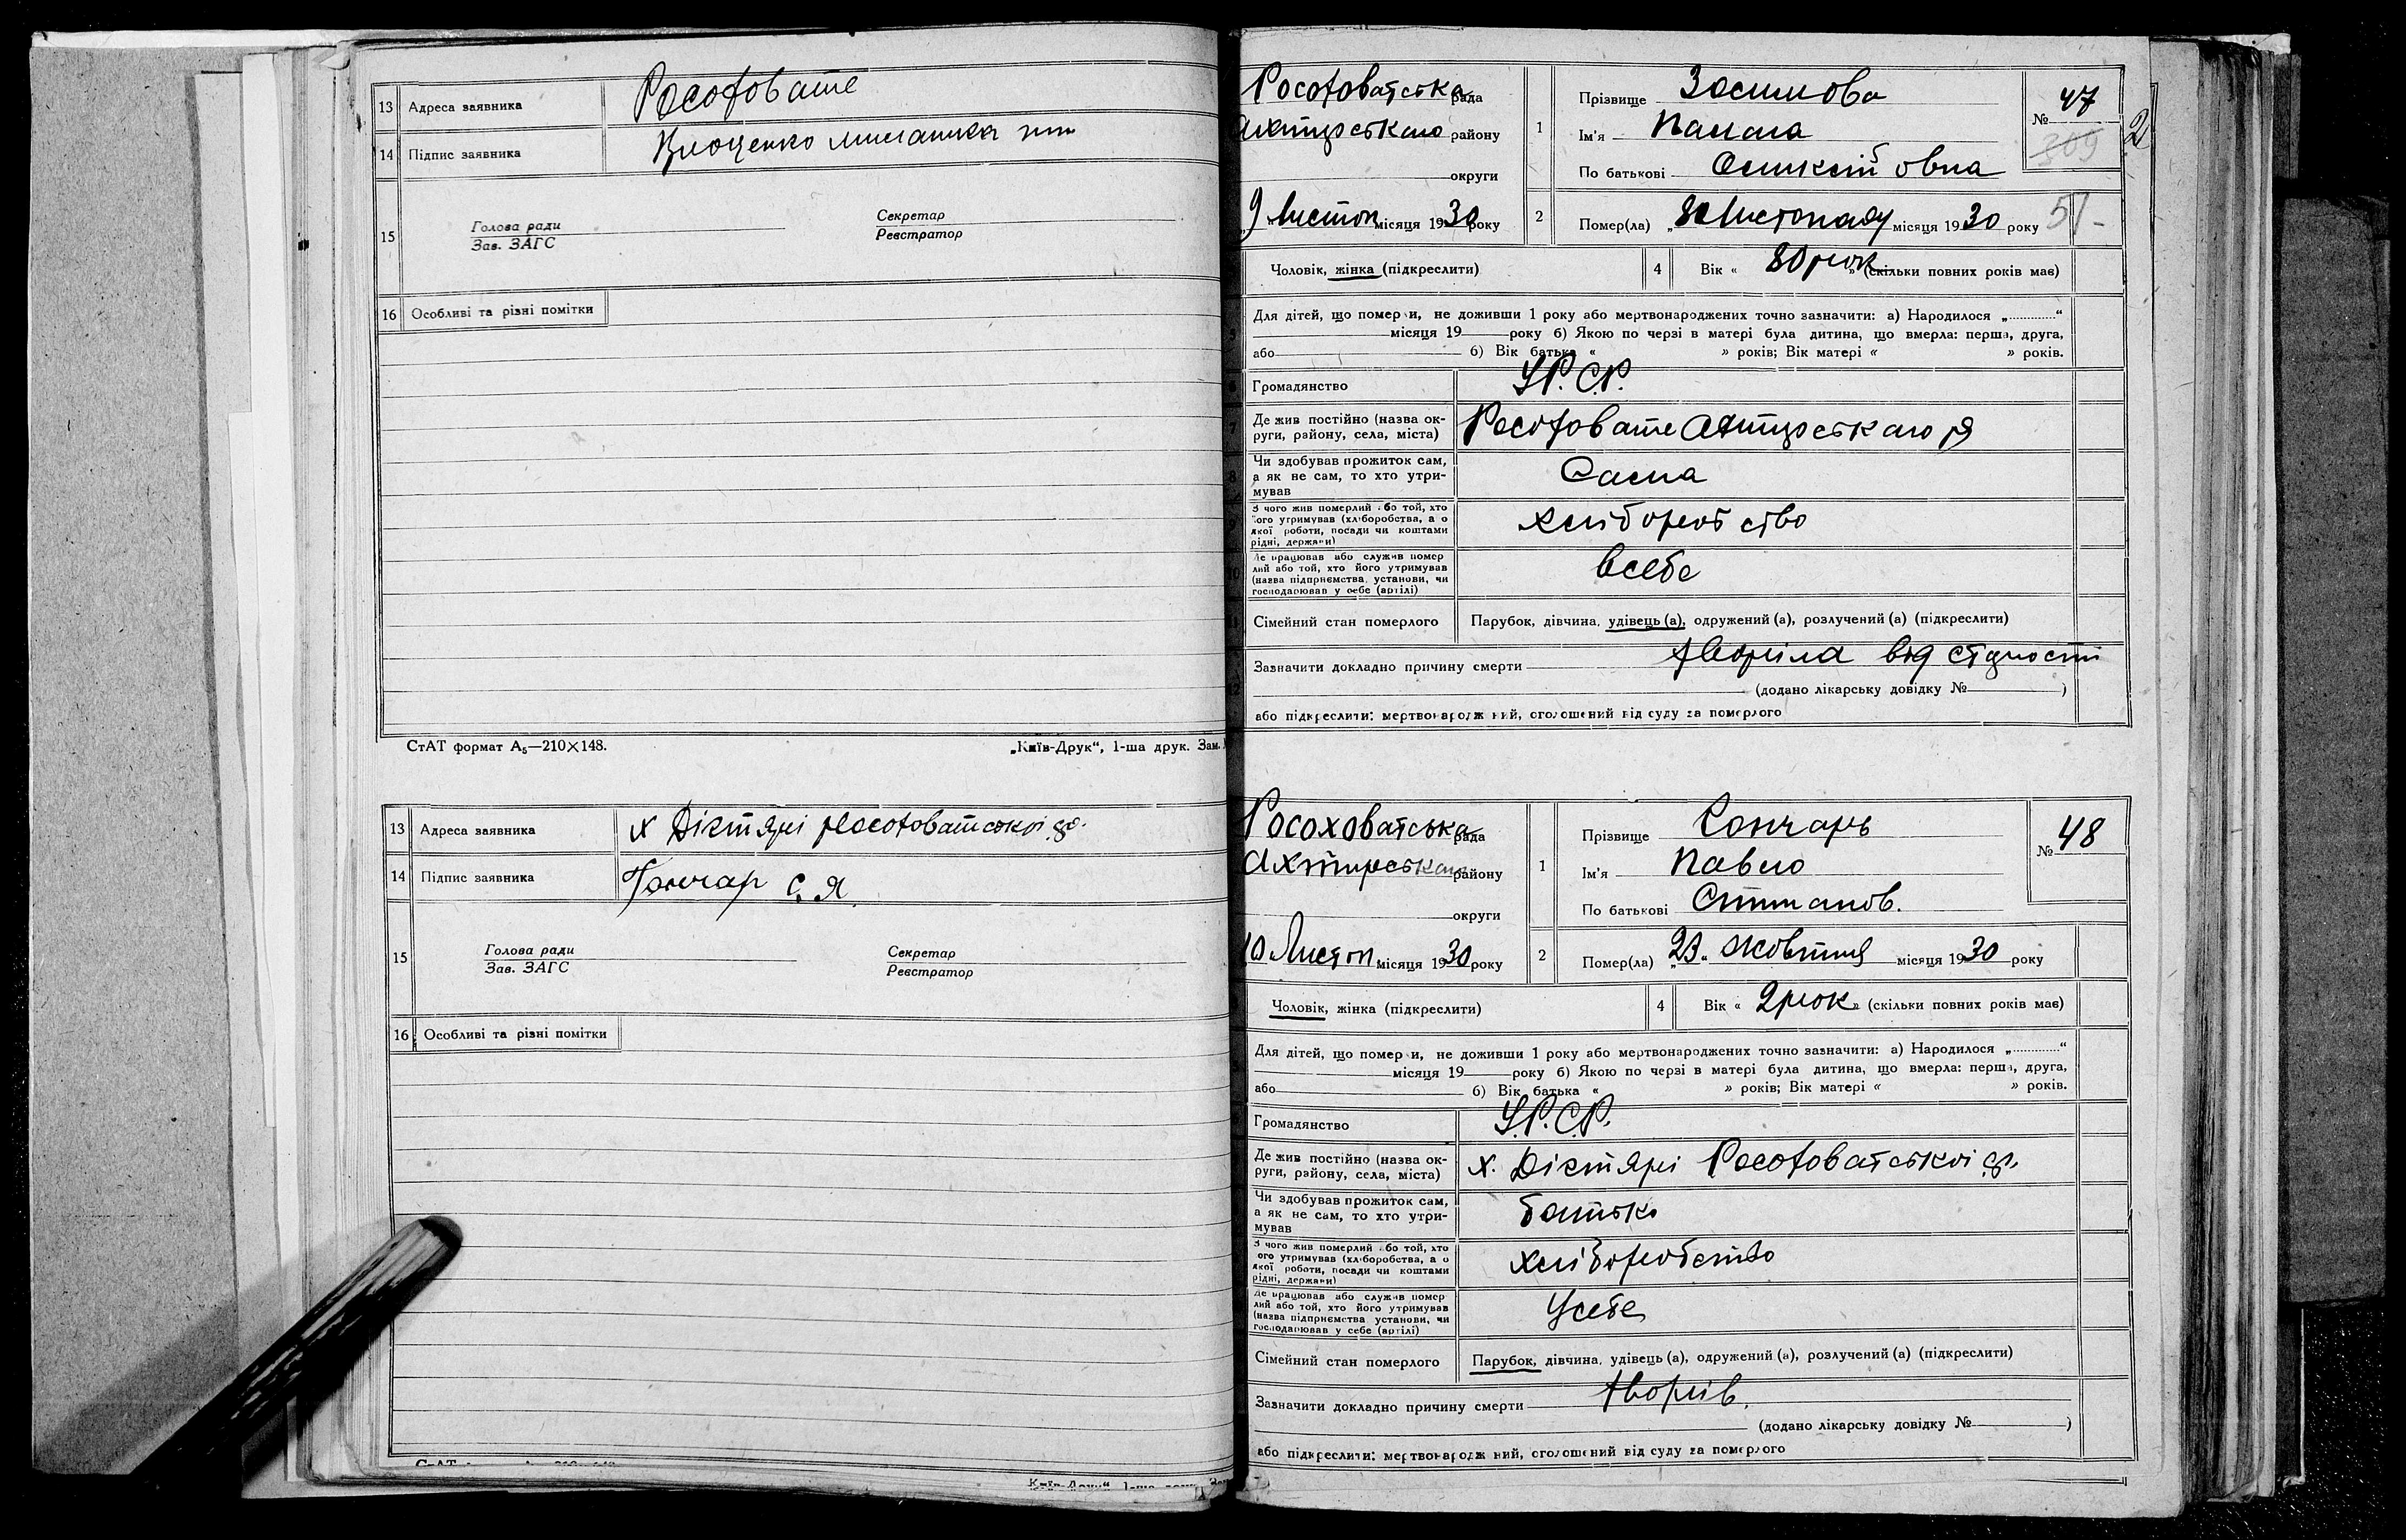 13 Адреса заявника Росоховате
14 Підпис заявника
15 Голова ради
Зав. ЗАГС
Секретар
Реєстратор
16 Особливі та різні помітки
СтАТ формат А₅—210×148.
„Київ-Друк“, 1-ша друк. Зам.
13 Адреса заявника х Дігтярі Росоховатської
14 Підпис заявника Гончар С. Я.
15 Голова ради
Зав. ЗАГС
Секретар
Реєстратор
16 Особливі та різні помітки
Росоховатська рада
Ахтирського району
округи
9 Листоп місяця 1930 року
1 Прізвище
Ім'я
По батькові
№ 47
309
2
2 Помер(ла) „8“ Листопаду місяця 1930 року 51-
Чоловік, жінка (підкреслити)
4 Вік « 80 рок » (скільки повних років має)
Для дітей, що померли, не доживши 1 року або мертвонароджених точно зазначити: а) Народилося „............“
місяця 19 року б) Якою по черзі в матері була дитина, що вмерла: перша, друга,
або б) Вік батька « » років; Вік матері « » років.
Громадянство У.Р.С.Р.
Де жив постійно (назва ок-
руги, району, села, міста) Росоховате Ахтирського р
Чи здобував прожиток сам,
а як не сам, то хто утри-
мував Сама
З чого жив померлий або той, хто
його утримував (хліборобства, а о
якої роботи, посади чи коштами
рідні, держави) хліборобство
Де працював або служив помер
лий або той, хто його утримував
(назва підприємства, установи, чи
господарював у себе (артілі) всебе
Сімейний стан померлого Парубок, дівчина, удівець (а), одружений (а), розлучений (а) (підкреслити)
Зазначити докладно причину смерти хворіла від
(додано лікарську довідку № )
або підкреслити: мертвонароджений, оголошений від суду за померлого
Росоховатська рада
Ахтирського району
округи
10 Листоп. місяця 1930 року
1 Прізвище Гончарь
Ім'я Павло
По батькові Степанов.
№ 48
2 Помер(ла) „23“ Жовтня місяця 1930 року
Чоловік, жінка (підкреслити)
4 Вік « 2 рок » (скільки повних років має)
Для дітей, що померли, не доживши 1 року або мертвонароджених точно зазначити: а) Народилося „............“
місяця 19 року б) Якою по черзі в матері була дитина, що вмерла: перша, друга,
або б) Вік батька « » років; Вік матері « » років.
Громадянство У.Р.С.Р.
Де жив постійно (назва ок-
руги, району, села, міста) х. Дігтярі Росоховатської
Чи здобував прожиток сам,
а як не сам, то хто утри-
мував батько
З чого жив померлий або той, хто
його утримував (хліборобства, а о
якої роботи, посади чи коштами
рідні, держави) хліборобство
Де працював або служив помер
лий або той, хто його утримував
(назва підприємства, установи, чи
господарював у себе (артілі) Усебе
Сімейний стан померлого Парубок, дівчина, удівець (а), одружений (а), розлучений (а) (підкреслити)
Зазначити докладно причину смерти хворів.
(додано лікарську довідку № )
або підкреслити: мертвонароджений, оголошений від суду за померлого